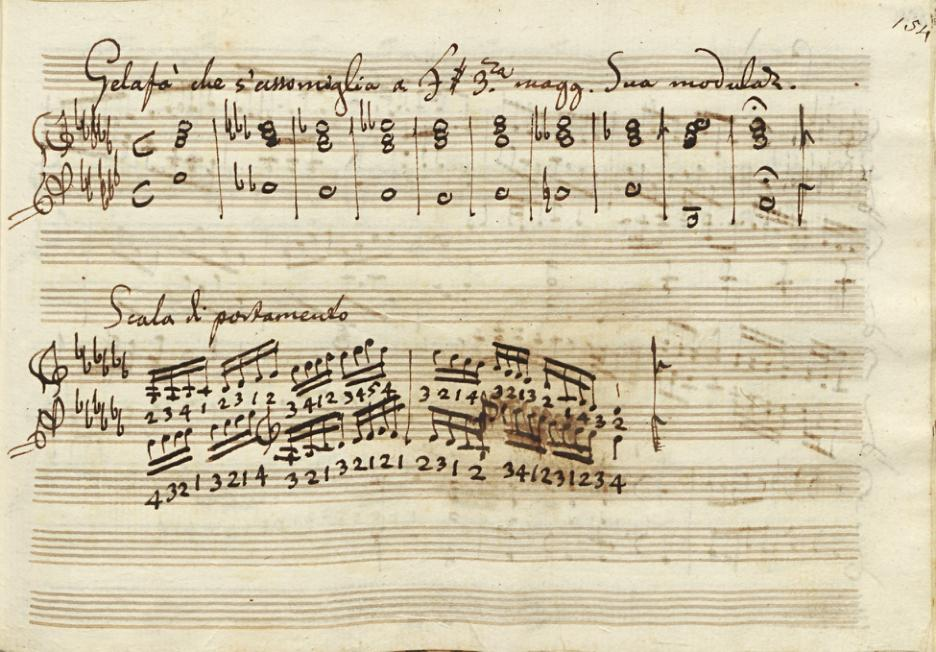 154
Gelafà che s'assomiglia a F# 3.za magg. Sua modulaz.
Scala di portamento
2 3 4 1 2 3 1 2 3 4 1 2 3 4 5 4 3 2 1 4 3 2 1 3 2 1 4 3 2
4 3 2 1 3 2 1 4 3 2 1 3 2 1 2 1 2 3 1 2 3 4 1 2 3 1 2 3 4